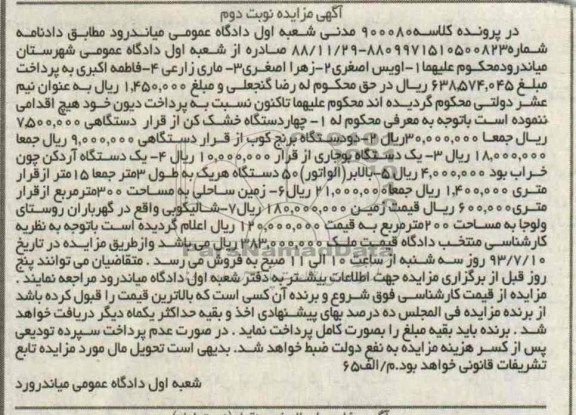 آگهی مزایده نوبت دوم
در پرونده کلاسه۹۰۰۰۸۰ مدنی شعبه اول دادگاه عمومی میاندرود مطابق دادنامه
شماره۸۸۰۹۹۷۱۵۱۰۵۰۰۸۲۳-۸۸/۱۱/۲۹ صادره از شعبه اول دادگاه عمومی شهرستان
میاندرودمحکوم علیهما۱-اویس اصغری۲-زهرا اصغری۳- ماری زارعی ۴-فاطمه اکبری به پرداخت
مبلغ ۶۳۸۵۷۴,۰۴۵ ریال در حق محکوم له رضا گنجعلی و مبلغ ۱,۴۵۰,۰۰۰ ریال به عنوان نیم
عشر دولتی محکوم گردیده اند محکوم علیهما تاکنون نسبت به پرداخت دیون خود هیچ اقدامی
ننموده است باتوجه به معرفی محکوم له ۱- چهاردستگاه خشک کن از قرار دستگاهی ۷,۵۰۰,۰۰۰
ریال جمعا ۳۰,۰۰۰,۰۰۰ریال ۲-دودستگاه برنج کوب از قرار دستگاهی ۹,۰۰۰,۰۰۰ ریال جمعا
۱۸,۰۰۰,۰۰۰ ریال ۳- یک دستگاه بوجاری از قرار ۱۰,۰۰۰,۰۰۰ ریال ۴- یک دستگاه آردکن چون
خراب بود ۴,۰۰۰,۰۰۰ ریال۵-بالابر(الواتور)۵۰ دستگاه هریک به طول ۳متر جمعا ۱۵متر ازقرار
متری ۱,۴۰۰,۰۰۰ ریال جمعا۲۱,۰۰۰,۰۰۰ ریال۶- زمین ساحلی به مساحت ۳۰۰مترمربع ازقرار
متری۶۰۰,۰۰۰ ریال قیمت زمین ۱۸۰,۰۰۰,۰۰۰ ریال۷-شالیکوبی واقع در گهرباران روستای
ولوجا به مساحت ۲۰۰مترمربع به قیمت ۱۲۰,۰۰۰,۰۰۰ ریال اعلام گردیده است باتوجه به نظریه
کارشناسی منتخب دادگاه قیمت ملک ۳۸۳,۰۰۰,۰۰۰ ریال می باشد وازطریق مزایده در تاریخ
۹۳/۷/۱۰ روز سه شنبه از ساعت ۱۰ الی ۱۱ صبح به فروش می رسد . متقاضیان می توانند پنج
روز قبل از برگزاری مزایده جهت اطلاعات بیشتر به دفتر شعبه اول دادگاه میاندرود مراجعه نمایند .
مزایده از قیمت کارشناسی فوق شروع و برنده آن کسی است که بالاترین قیمت را قبول کرده باشد
از برنده مزایده فی المجلس ده درصد بهای پیشنهادی اخذ و بقیه حداکثر یکماه دیگر دریافت خواهد
شد . برنده باید بقیه مبلغ را بصورت کامل پرداخت نماید . در صورت عدم پرداخت سپرده تودیعی
پس از کسر هزینه مزایده به نفع دولت ضبط خواهد شد. بدیهی است تحویل مال مورد مزایده تابع
تشریفات قانونی خواهد بود.م/الف۶۵
شعبه اول دادگاه عمومی میاندرورد